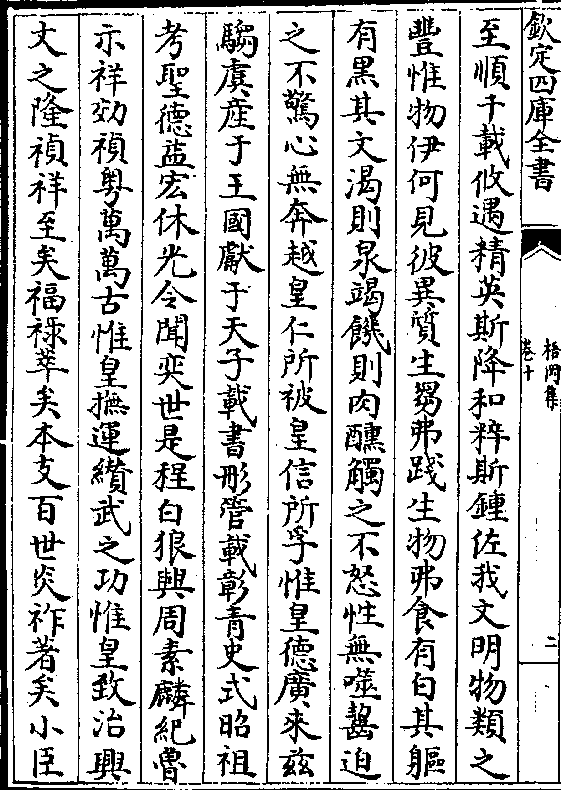 欽定四庫全書
梧岡集
卷十
二
至順千載攸遇精英斯降和粹斯鍾佐我文明物類之
豐惟物伊何見彼異質生芻弗踐生物弗食有白其軀
有黒其文渇則泉竭饑則肉醺觸之不怒性無噬齧迫
之不驚心無奔越皇仁所被皇信所孚惟皇德廣來兹
騶虞産于王國獻于天子載書彤管載彰青史式昭祖
考聖德益宏休光令聞奕世是程白狼興周素麟紀魯
示祥効禎粤萬萬古惟皇撫運纉武之功惟皇致治興
文之隆禎祥至矣福禄萃矣本支百世炎祚著矣小臣